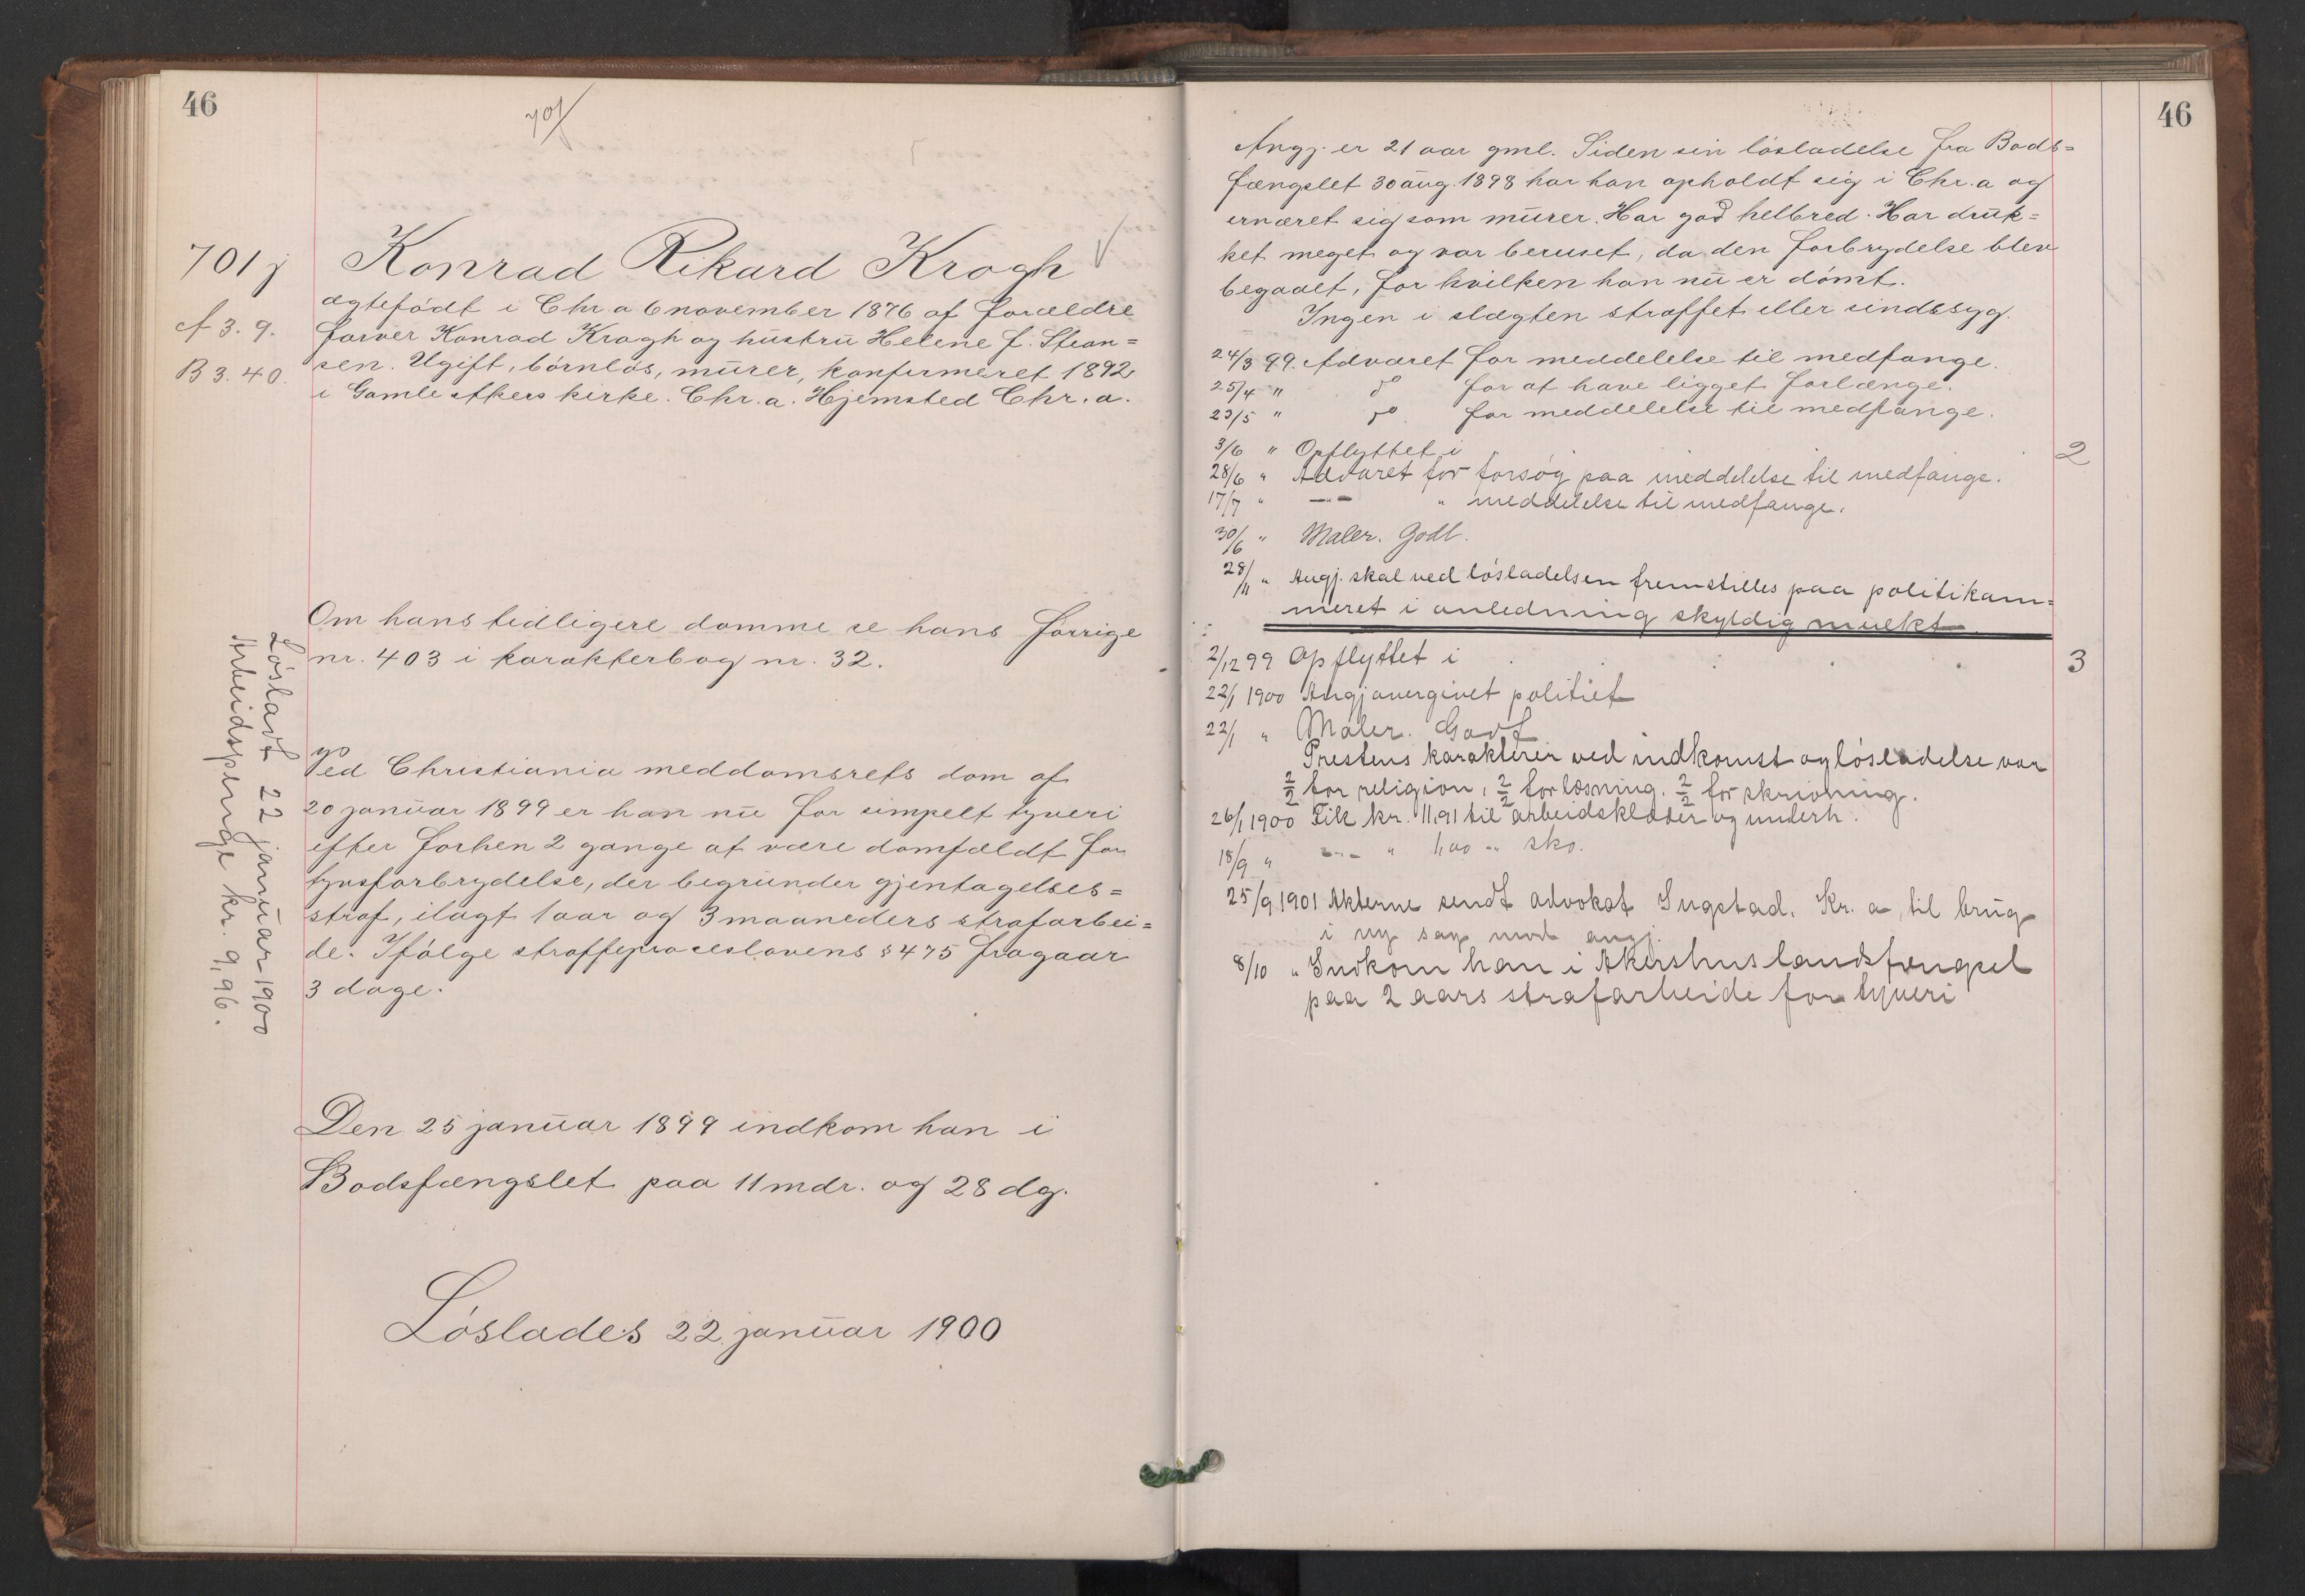 46
701
701 j
Konrad Rikard Krogh
ægtefödt i Chr a 6 november 1876 af forældre
cf 3. 9.
farver Konrad Krogh og hustru Helene f. Stean=
B 3. 40.
sen. Ugift, börnlös, murer, konfirmeret 1892
i Gamle Akers kirke. Chr. a. Hjemsted Chr. a.
Om hans tidligere domme se hans forrige
nr. 403 i karakterbog nr. 32.
Lösladt 22 januar 1900
Arbeidspenge kr. 9,96.
Ved Christiania meddomsrets dom af
20 januar 1899 er han nu for simpelt tyveri
efter forhen 2 gange at være domfældt for
tyvsforbrydelse, der begrunder gjentagelses=
straf, ilagt 1 aar og 3 maaneders strafarbei=
de. Ifölge straffeproceslovens § 475 fragaar
3 dage.
Den 25 januar 1899 indkom han i
Bodsfængslet paa 11 mdr. og 28 dg.
Löslades 22 januar 1900
46
Angj. er 21 aar gml. Siden sin lösladelse fra Bods=
fængslet 30 aug. 1898 har han opholdt sig i Chr. a og
ernæret sig som murer. Har god helbred. Har druk=
ket meget og var beruset, da den forbrydelse blev
begaaet, for hvilken han nu er dömt.
Ingen i slægten straffet eller sindssyg.
24/3 99. Advaret for meddelelse til medfange.
25/4 " do for at have ligget forlænge.
23/5 " do for meddelelse til medfange.
3/6 " Opflyttet i 2
28/6 " Advaret for forsög paa meddelelse til medfange.
17/7 " —"— " meddelelse til medfange.
30/6 " Maler. Godt.
28/11 " Angj. skal ved lösladelsen fremstilles paa politikam=
meret i anledning skyldig mulkt.
2/12 99 Opflyttet i 3
22/1 1900 Angj overgivet politiet
22/1 " Maler. Godt
Prestens karakterer ved indkomst og lösladelse var
2/2 for religion, 2/2 for læsning. 2/2 for skrivning.
26/1 1900 Fik kr. 11,91 til arbeidsklæder og underh.
18/9 " —"— " 1,00 " sko.
25/9 1901 Akterne sendt advokat Ingstad. Kr. a, til brug
i ny sag mod angj.
8/10 " Indkom han i Akershus landsfengsel
paa 2 aars strafarbeide for tyveri